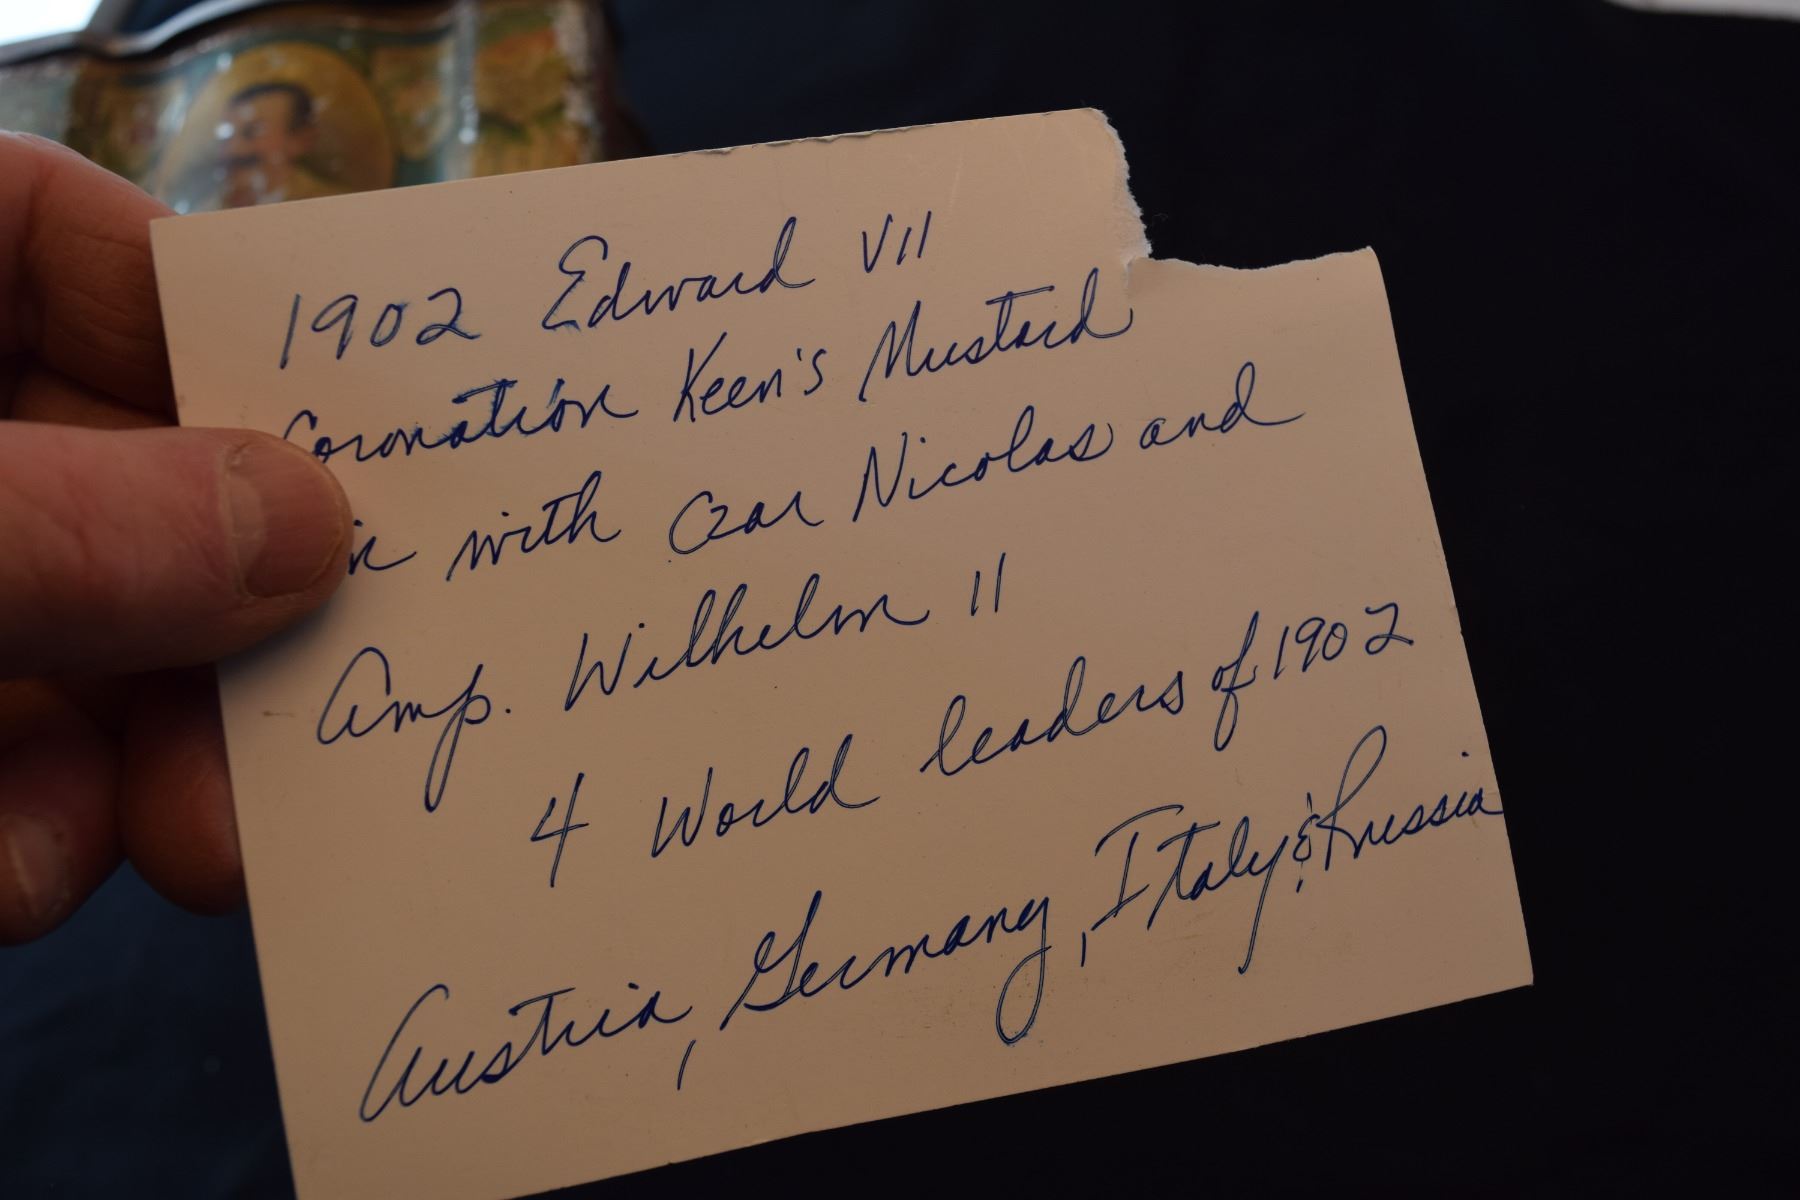 1902 Edward VII
Coronation Keen's Mustard
with Czar Nicolas and
Amp. Wilhelm II
4 World leaders of 1902
Austria, Germany, Italy, & Russia